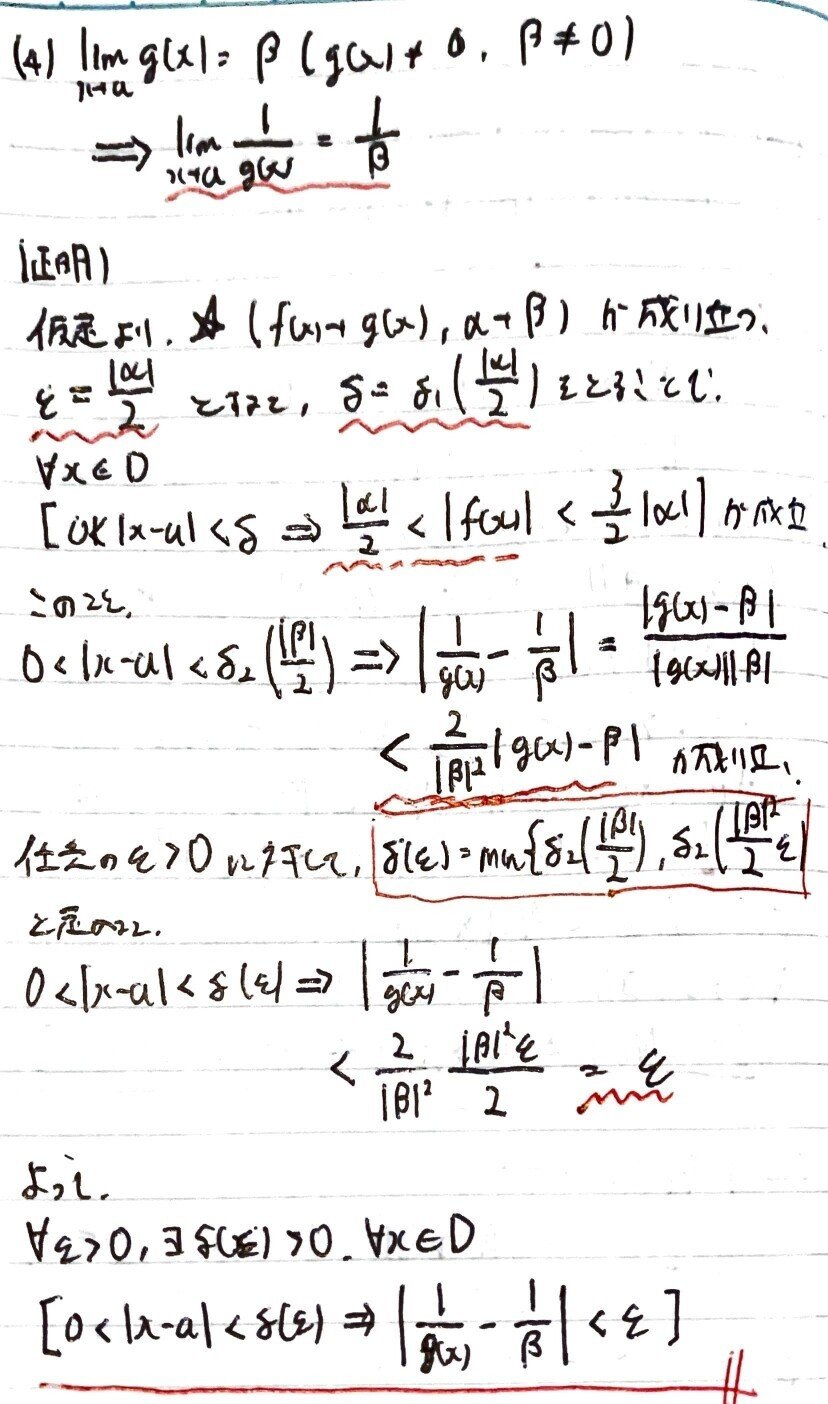 (4) lim_{x→a} g(x) = β (g(x) ≠ 0, β ≠ 0)
⟹ lim_{x→a} 1/g(x) = 1/β
(証明)
仮定より、☆ (f(x)→g(x), α→β) が成り立つ、
ε = |α|/2 とすると, δ = δ₁(|α|/2) をとることで、
∀x ∈ D
[0<|x-a| < δ ⇒ |α|/2 < |f(x)| < 3/2 |α|] が成立
このとき、
0 < |x-a| < δ₂(|β|/2) ⟹ |1/g(x) - 1/β| = |g(x)-β| / |g(x)||β|
< 2/|β|² |g(x)-β| が成り立、
任意の ε > 0 に対して, δ(ε) = min{δ₂(|β|/2), δ₂(|β|²/2 ε
と定めると、
0 < |x-a| < δ(ε) ⟹ |1/g(x) - 1/β|
< 2/|β|² |β|²ε/2 = ε
よって、
∀ε > 0, ∃δ(ε) > 0, ∀x ∈ D
[0 < |x-a| < δ(ε) ⇒ |1/g(x) - 1/β| < ε]